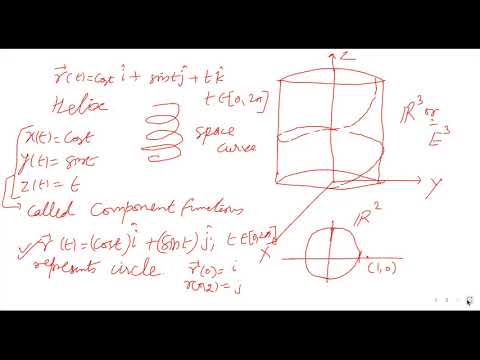 r⃗(t)=cost î + sint ĵ + t k̂
Helix
t∈[0,2π]
space
curve
x(t)=cost
y(t)=sint
z(t)=t
called Component functions
r⃗(t)=(cost) î +(sint) ĵ, t∈[0,2π]
represents circle
r⃗(0)=i
r(π/2)=j
Z
Y
X
ℝ³ or
E³
ℝ²
(1,0)